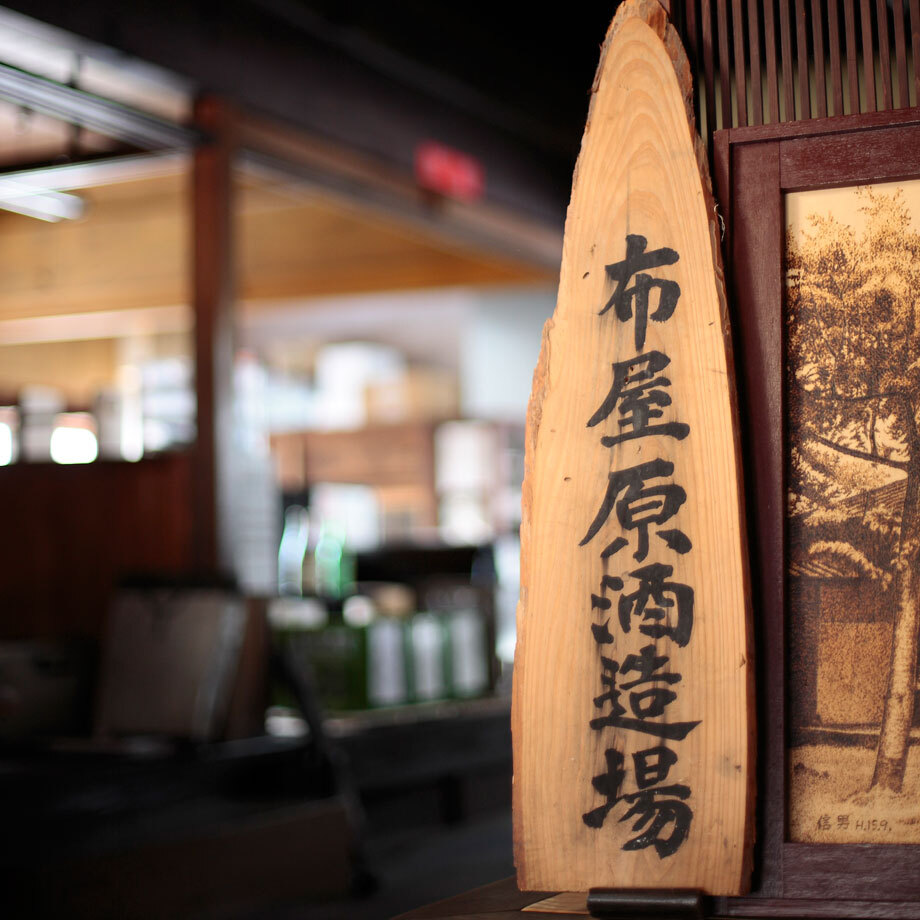 布屋原酒造場
信男 H.15.9.